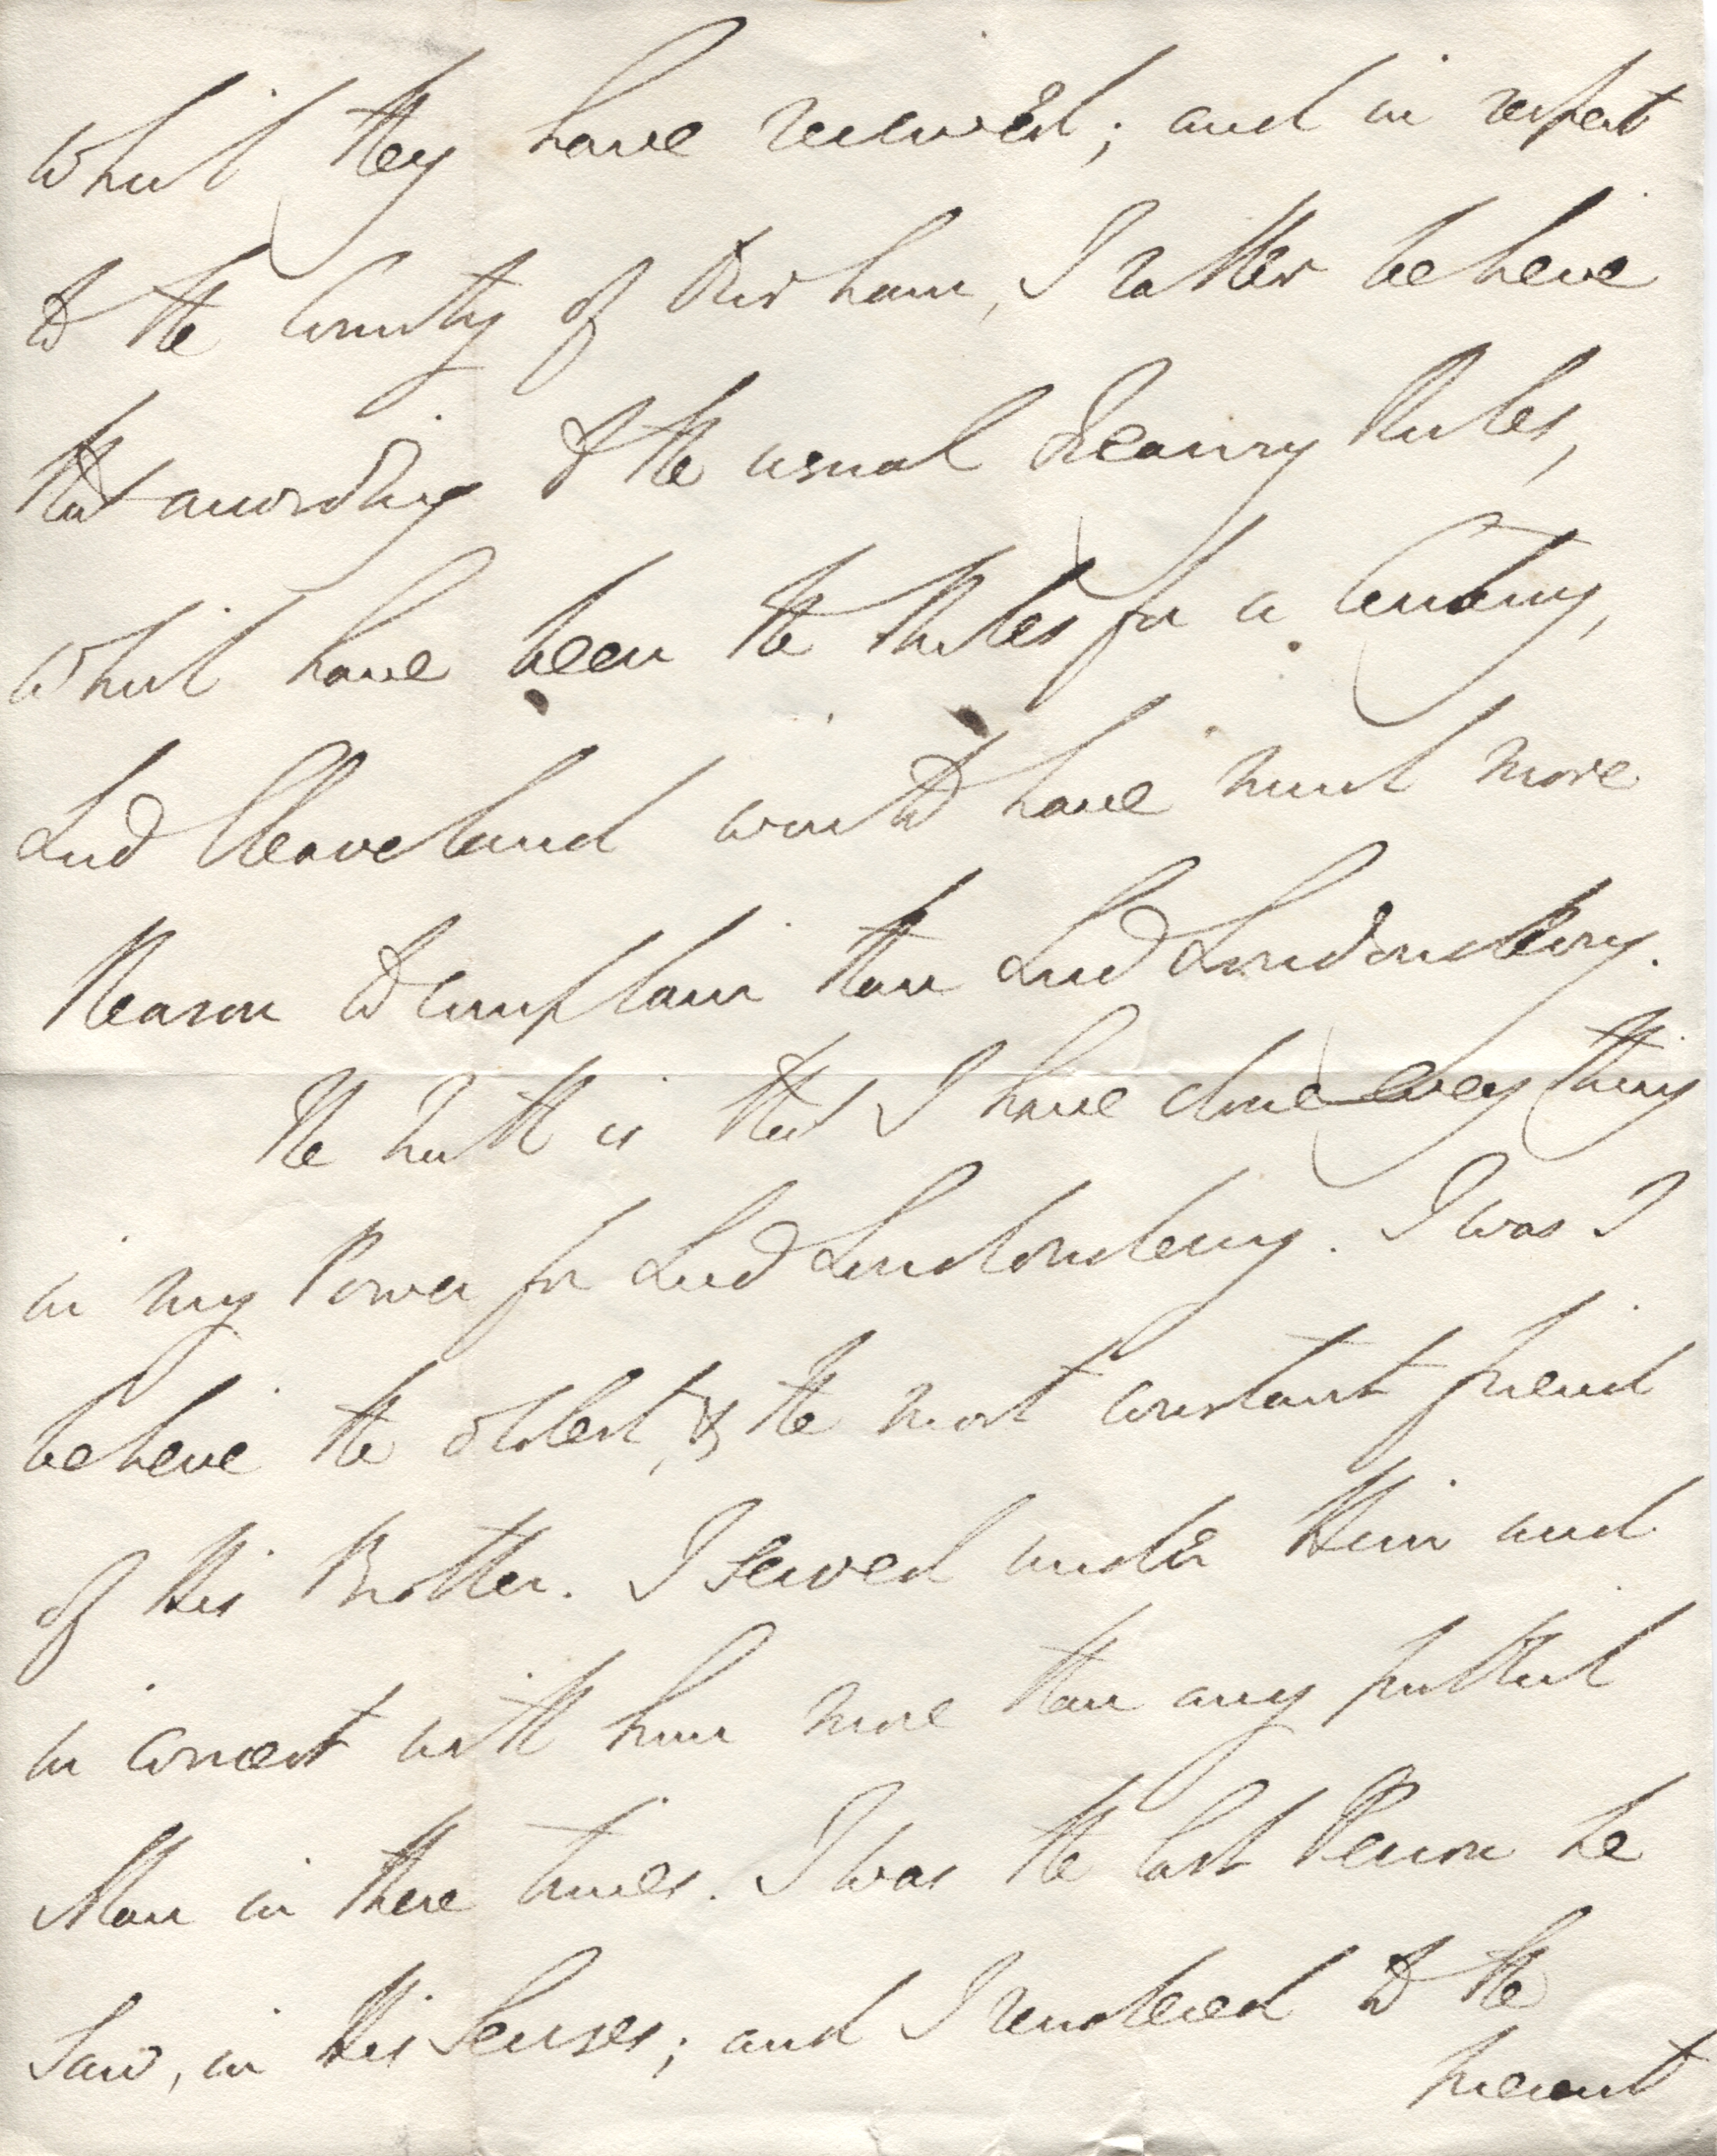 which they have received; and in respect
to the County of Durham, I rather believe
that according to the usual Treasury Rules,
which have been the Rules for a Century,
Lord Cleaveland would have much more
Reason to complain than Lord Londonderry.
The truth is that I have done every thing
in my Power for Lord Londonderry. I was I
believe the oldest, & the most constant friend
of His Brother. I served under Him and
in concert with him more than any publick
Man in these times. I was the last Person he
saw, in His Senses; and I rendered to the
present